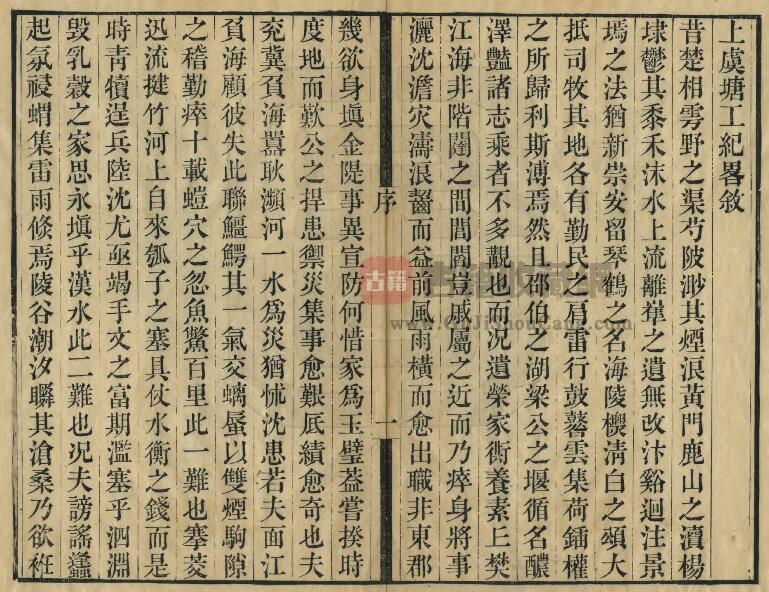 上虞塘工紀畧敘
昔楚相雩野之渠芍陂渺其煙浪黃門鹿山之瀆楊
埭鬱其黍禾沫水上流離𡸁之遺無改汴谿迴注景
焉之法猶新崇安留琴鶴之名海陵櫻淸白之頌大
抵司牧其地各有勤民之肩雷行鼓鼛雲集荷鍤權
之所歸利斯溥焉然且邵伯之湖梁公之堰循名醲
澤豔諸志乘者不多覯也而況遺榮家衖養素上樊
江海非階闥之間閭閻豈戚屬之近而乃瘁身將事
灑沈澹灾濤浪齧而益前風雨橫而愈出職非東郡
序
一
幾欲身塡金隄事異宣防何惜家爲玉璧葢嘗揆時
度地而歎公之捍患禦災集事愈艱厎績愈奇也夫
兗冀負海囂耿瀕河一水爲災猶怵沈患若夫面江
負海顧彼失此聯鱷鰐其一氣交螭蜃以雙煙駒隙
之稽勤瘁十載螘穴之忽魚鱉百里此一難也搴茭
迅流揵竹河上自來瓠子之塞具仗水衡之錢而是
時靑犢逞兵陸沈尤亟竭手文之富期濫塞乎泗淵
毀乳穀之家思永塡乎漢水此二難也况夫謗謠蠭
起氛祲蝟集雷雨倏焉陵谷潮汐瞬其滄桑乃欲衽
古籍
古籍收藏网
www.GuJiShouCang.com